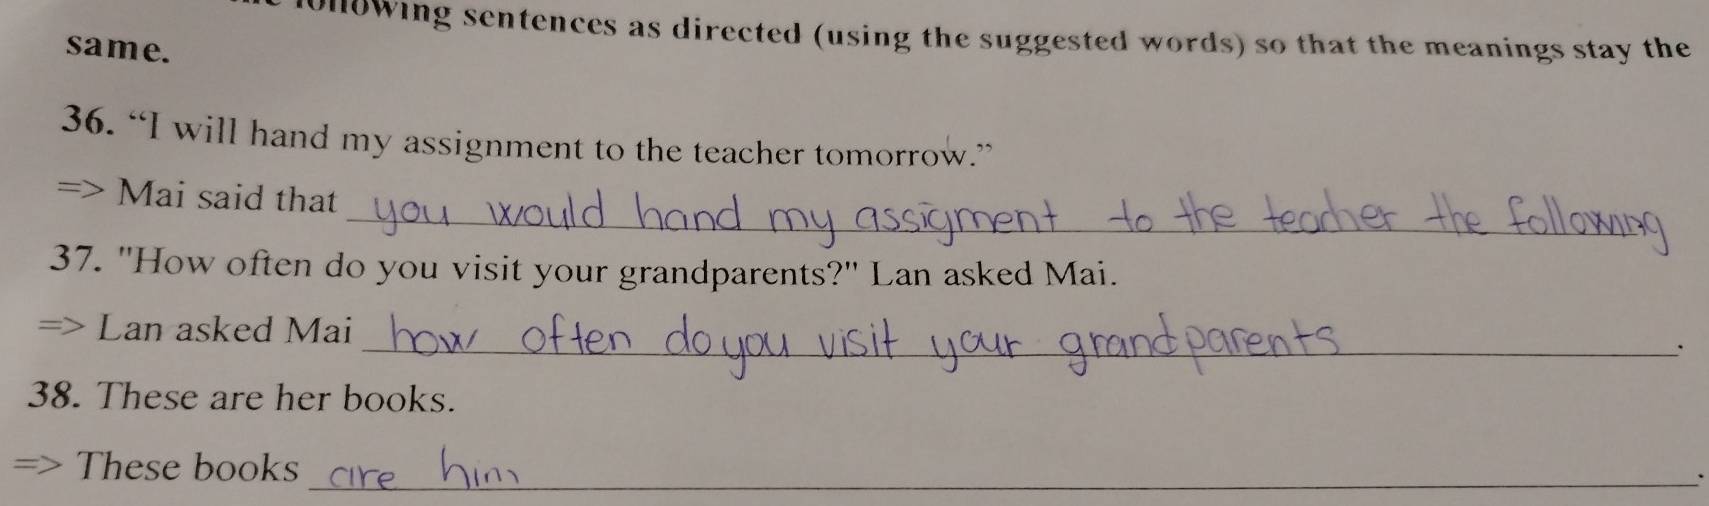 following sentences as directed (using the suggested words) so that the meanings stay the
same.
36. “I will hand my assignment to the teacher tomorrow.”
=> Mai said that you would hand my assigment to the teacher the following
37. "How often do you visit your grandparents?" Lan asked Mai.
=> Lan asked Mai how often do you visit your grandparents.
38. These are her books.
=> These books are him.